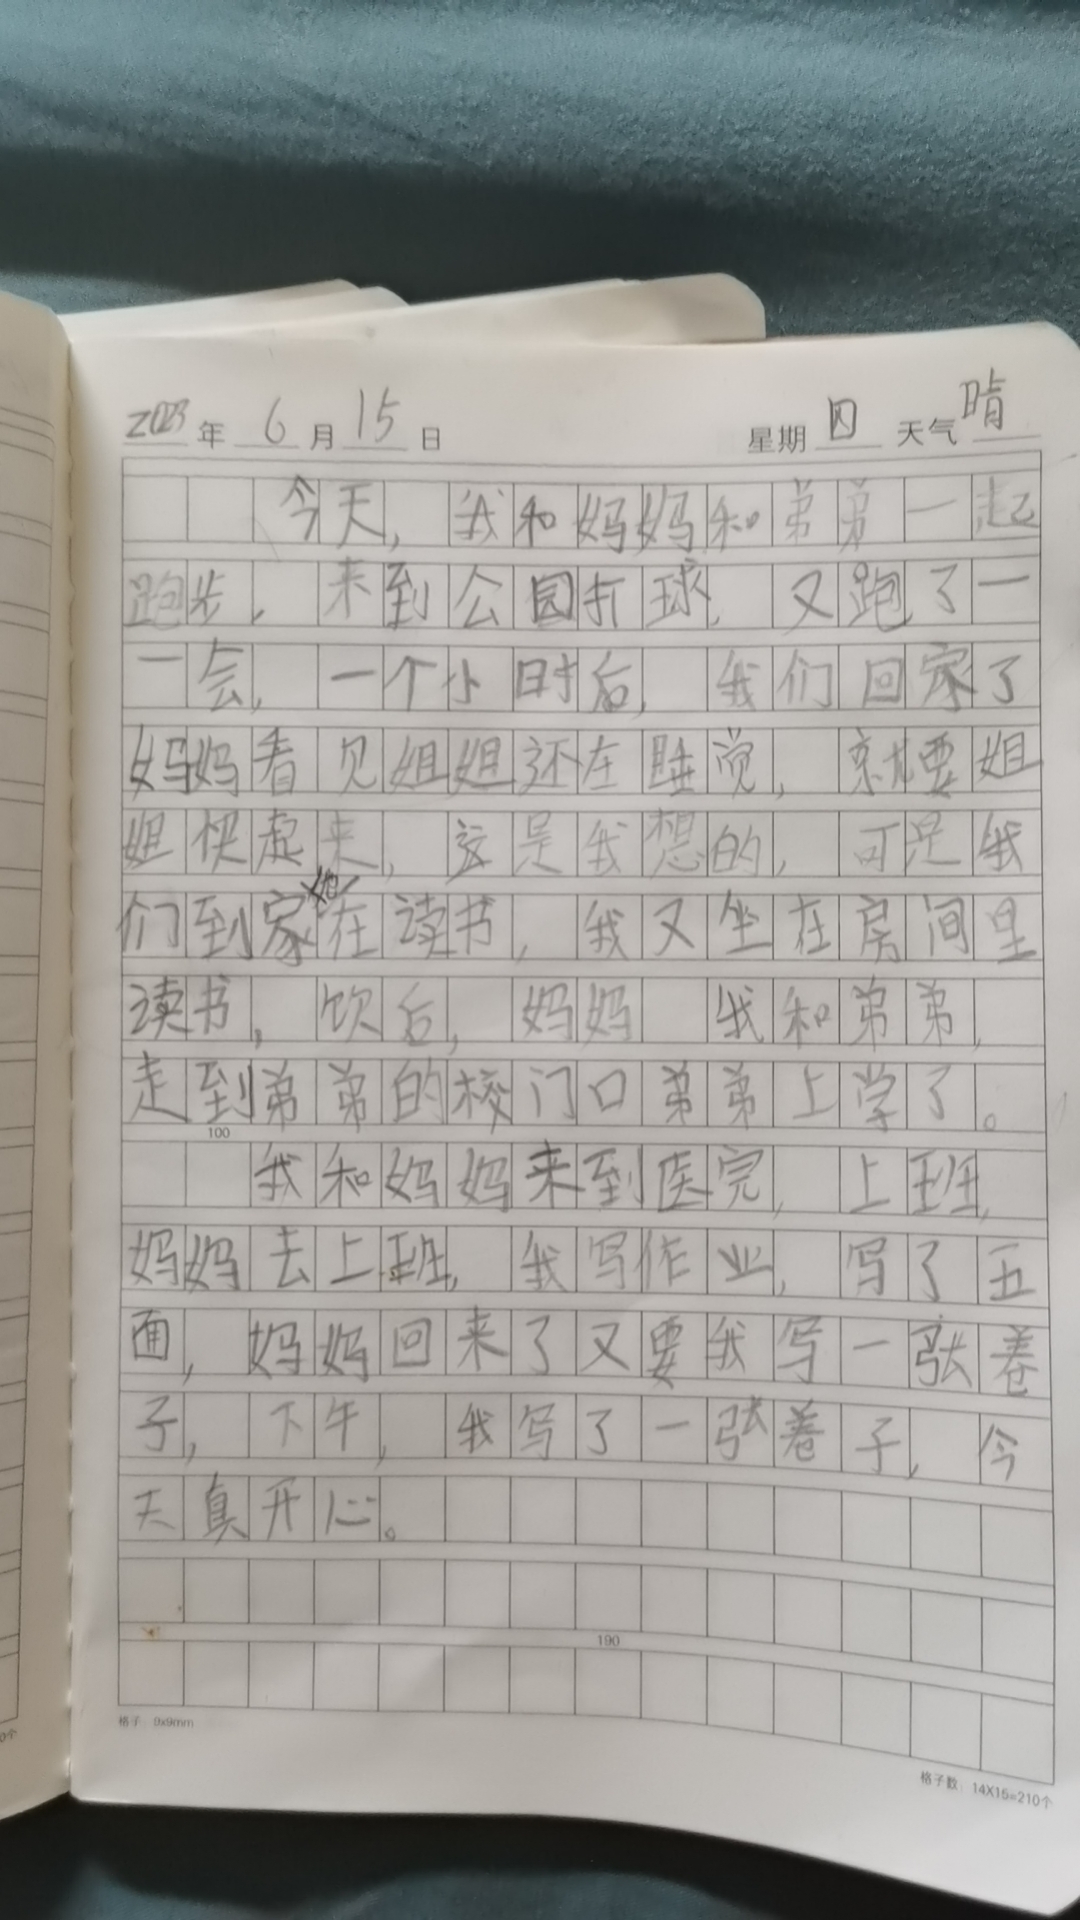 2023年6月15日 星期四 天气晴
今天,我和妈妈和弟弟一起
跑步,来到公园打球,又跑了一
一会,一个小时后,我们回家了
妈妈看见姐姐还在睡觉,就要姐
姐快起来,这是我想的,可是我
们到家她在读书,我又坐在房间里
读书,饮后,妈妈 我和弟弟,
走到弟弟的校门口弟弟上学了。
100
我和妈妈来到医完,上班,
妈妈去上班,我写作业,写了五
面,妈妈回来了又要我写一张卷
子,下午,我写了一张卷子,今
天真开心。
190
格子:9x9mm
格子数:14X15=210个